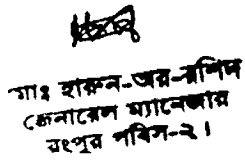 গাঃ হারুন-অর-রশিদ
জেনারেল ম্যানেজার
রংপুর পবিস-২।